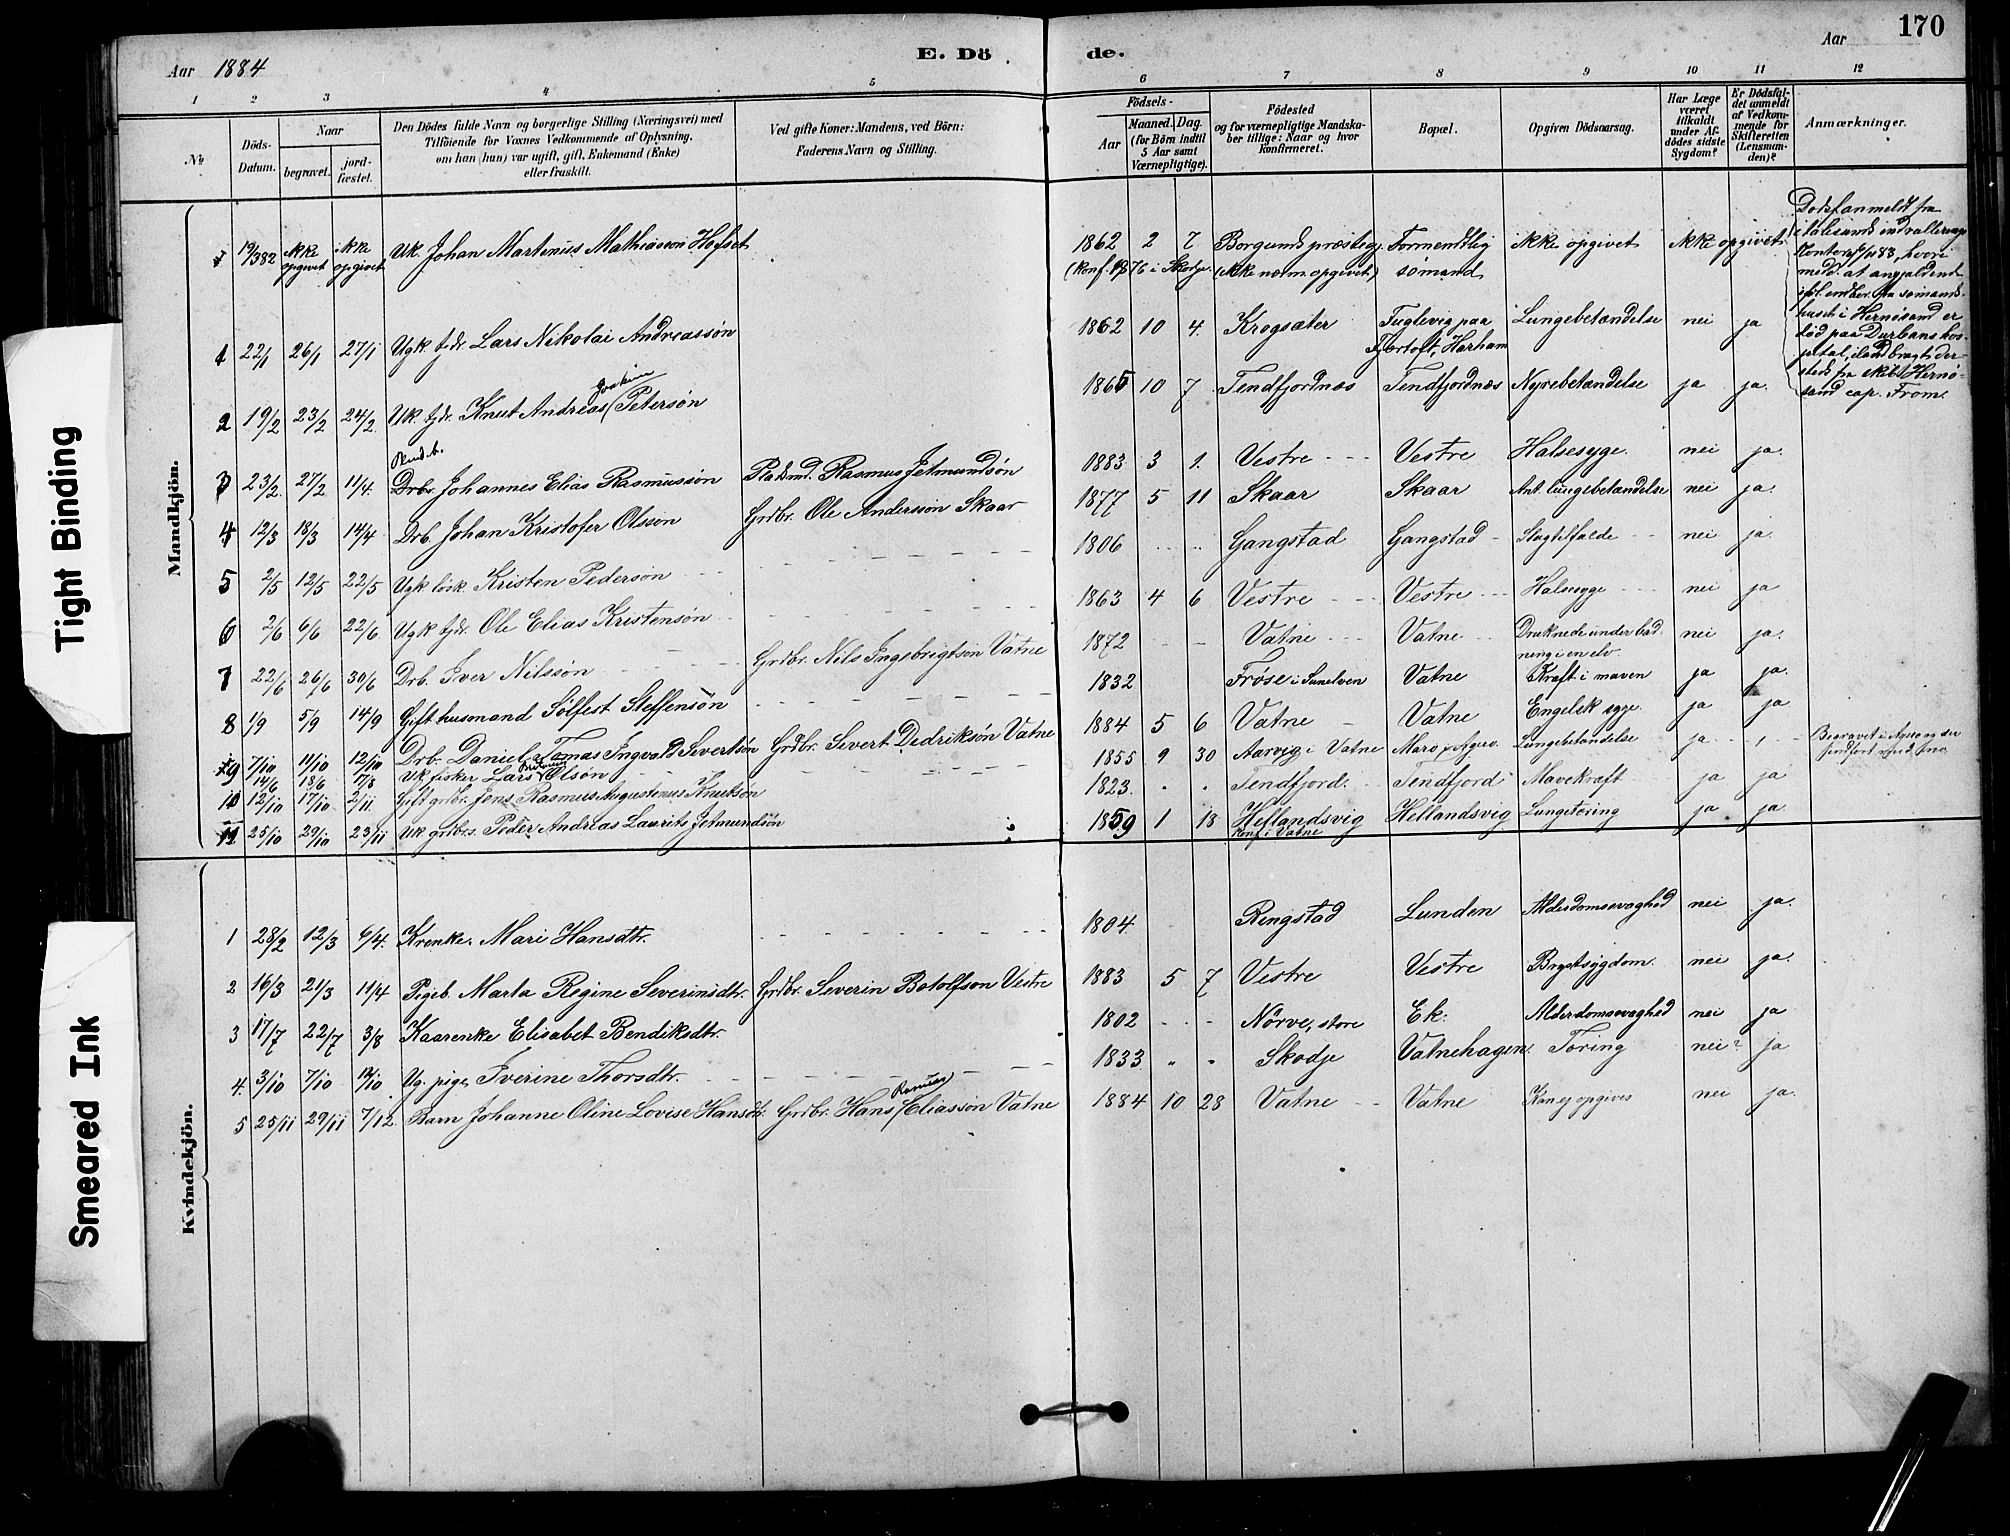 170
Aar 1884
E. Dö
de.
Aar
1 2 3 4 5 6 7 8 9 10 11 12
№
Döds-Datum.
Naar
begravet.
jord-fæstet.
Den Dödes fulde Navn og borgerlige Stilling (Næringsvei) med
Tilföiende for Voxnes Vedkommende af Oplysning,
om han (hun) var ugift, gift, Enkemand (Enke)
eller fraskilt.
Ved gifte Koner: Mandens, ved Börn:
Faderens Navn og Stilling.
Födsels-
Aar
Maaned. Dag.
(for Börn indtil
5 Aar samt
Værnepligtige).
Födested
og for værnepligtige Mandska-
ber tillige: Naar og hvor
konfirmeret.
Bopæl.
Opgiven Dödsaarsag.
Har Læge
været
tilkaldt
under Af-
dödes sidste
Sygdom?
Er Dödsfal-
det anmeldt
af Vedkom-
mende for
Skifteretten
(Lensman-
den)?
Anmærkninger.
Mandkjön.
19/3 82 ikke opgivet ikke opgivet Uk. Johan Martinus Mathiassøn Hofset 1862 2 7 Borgunds præsteg. Formentlig ikke opgivet ikke opgivet
(konf. 1876 i Skodje. (ikke nærm. opgivet) sømand
Dødsf. anmeldt fra
Aalesunds indrullerings
kontor 7/11 83, hvor
med. at angjældende
iføl. endber. fra sømands-
huset i Hernøsand er
død paa Durbans hos-
pital, ilandbragt der-
sted fra skibet Hernø-
sand cap. From.
1 22/1 26/1 27/1 Ugk. tjdr. Lars Nikolai Andreassøn 1862 10 4. Krogsæter Fuglevig paa Lungebetændelse nei ja
Fjørtoft, Harham
2 19/2 23/2 24/2. Uk. tjdr. Knut Andreas Joakim Petersøn 1865 10 7 Tendfjordnæs Tendfjordnæs Nyrebetændelse ja ja.
3 23/2. 27/2 11/4. Drb. Johannes Elias Rasmussøn Pladsmd. Rasmus Jetmundsøn 1883 3 1. Vestre Vestre Halsesyge. nei ja.
4 12/3 18/3 14/4 Drb. Johan Kristofer Olsøn Grdbr. Ole Anderssøn Skaar 1877 5 11 Skaar Skaar Ant. lungebetændelse nei ja.
5 2/5 12/5 22/5 Ugk løsk. Kristen Pedersøn 1806 Gangstad Gangstad Slagtilfælde nei ja.
6 2/6 6/6 22/6 Ugk tjdr. Ole Elias Kristensøn 1863 4 6 Vestre Vestre Halsesyge nei ja
7 22/6 26/6 30/6 Drb. Iver Nilssøn Grdbr. Nils Ingebrigtsøn Vatne 1872 Vatne Vatne Druknede under bad- nei ja.
ning i en elv
8 1/9 5/9 14/9 Gift husmand Sølfest Steffensøn 1832 Frøse i Sunelven Vatne Kræft i maven ja ja.
9 7/10 11/10 12/10 Drb. Daniel Tomas Ingvald Severtsøn Grdbr. Sivert Dedriksøn Vatne 1884 5 6 Vatne Vatne Engelsk syge. ja ja
14/6 18/6 17/8 Uk. fisker Lars Olsøn 1855 9 30 Aarvig i Vatne Lungebetændelse ja
10 12/10 17/10 2/11. Gift grdbr. Jens Rasmus Augustinus Knutsøn 1823. Tendfjord. Tendfjord Mavekræft ja ja
11 25/10 29/10 23/11 Uk. grdbrs. Peder Andreas Laurits Jetmundsøn 1859 1 18 Hellandsvig Hellandsvig Lungetæring ja ja.
konf. i Vatne
Kvindekjön.
1 28/2 12/3 6/4. Krenke. Mari Hansdtr. 1804. Ringstad Lunden Alderdomssvaghed nei ja.
2 16/3 21/3 11/4 Pigeb. Marta Regine Severinsdtr. Grdbr. Severin Botolfson Vestre 1883 5 7 Vestre Vestre Brystsygdom. nei ja.
3 17/7 22/7 3/8 Kaarenke Elisabet Bendiksdtr. 1802 Nørve, store Ek: Alderdomssvaghed nei ja
4. 3/10 7/10 12/10 Ug. pige, Iverine Thorsdtr. 1833 Skodje Vatnehagen. Tæring nei? ja
5 25/11 29/11 7/12. Barn Johanne Oline Lovise Hansdtr. Grdbr. Hans Rasmus Eliassøn Vatne 1884 10 28 Vatne Vatne Kan ej opgives nei ja.
Tight Binding
Smeared Ink